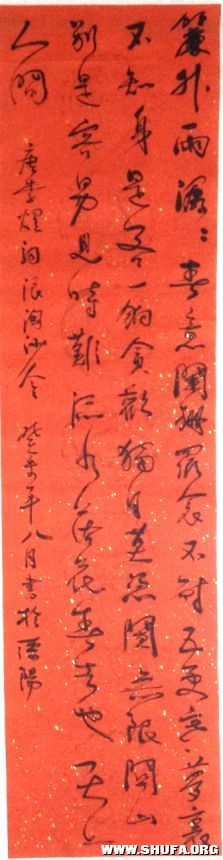 簾外雨潺〻春意闌珊羅衾不耐五更寒夢裏
不知身是客一餉貪歡獨自莫憑闌無限關山
別是容易見時難流水落花春去也天上
人間
唐李煜詞浪淘沙令 癸未年八月書於溧陽
WWW.SHUFA.ORG